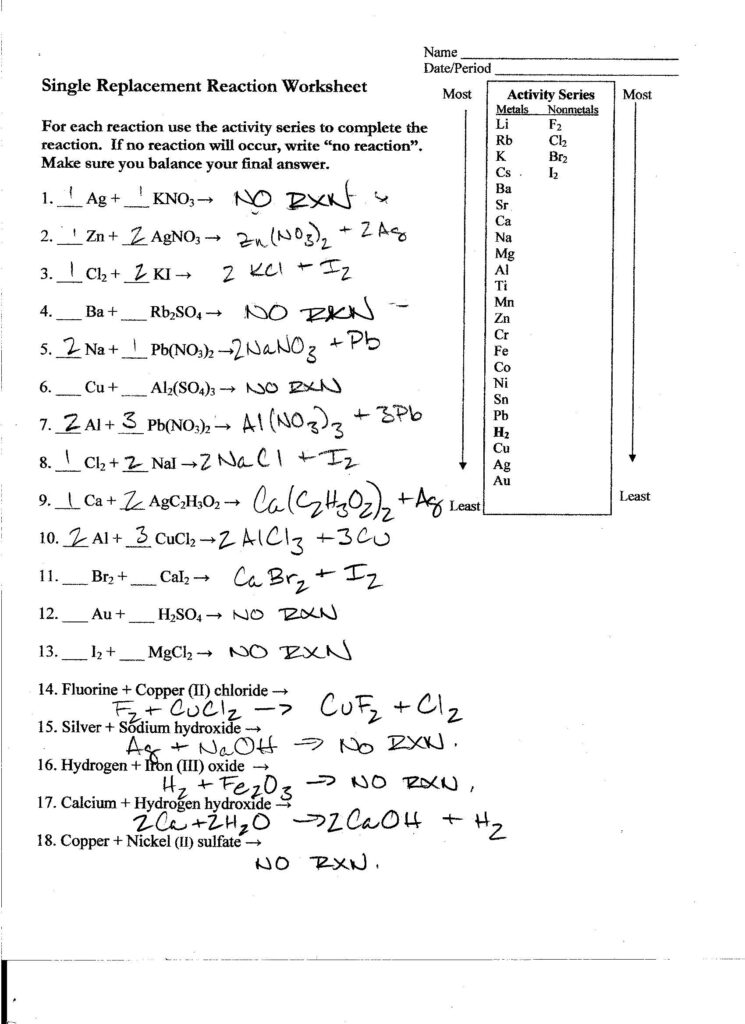 Name
Date/Period
Single Replacement Reaction Worksheet
For each reaction use the activity series to complete the
reaction. If no reaction will occur, write “no reaction”.
Make sure you balance your final answer.
1. 1 Ag + 1 KNO₃ → NO RXN
2. 1 Zn + 2 AgNO₃ → Zn(NO₃)₂ + 2Ag
3. 1 Cl₂ + 2 KI → 2 KCl + I₂
4. __ Ba + __ Rb₂SO₄ → NO RXN
5. 2 Na + 1 Pb(NO₃)₂ → 2NaNO₃ + Pb
6. __ Cu + __ Al₂(SO₄)₃ → NO RXN
7. 2 Al + 3 Pb(NO₃)₂ → Al(NO₃)₃ + 3Pb
8. 1 Cl₂ + 2 NaI → 2 NaCl + I₂
9. 1 Ca + 2 AgC₂H₃O₂ → Ca(C₂H₃O₂)₂ + Ag
10. 2 Al + 3 CuCl₂ → 2 AlCl₃ + 3Cu
11. __ Br₂ + __ CaI₂ → CaBr₂ + I₂
12. __ Au + __ H₂SO₄ → NO RXN
13. __ I₂ + __ MgCl₂ → NO RXN
14. Fluorine + Copper (II) chloride →
F₂ + CuCl₂ → CuF₂ + Cl₂
15. Silver + Sodium hydroxide →
Ag + NaOH → No RXN.
16. Hydrogen + Iron (III) oxide →
H₂ + Fe₂O₃ → NO RXN,
17. Calcium + Hydrogen hydroxide →
2Ca + 2H₂O → 2CaOH + H₂
18. Copper + Nickel (II) sulfate →
NO RXN.
Most Activity Series Most
Metals Nonmetals
Li F₂
Rb Cl₂
K Br₂
Cs I₂
Ba
Sr
Ca
Na
Mg
Al
Ti
Mn
Zn
Cr
Fe
Co
Ni
Sn
Pb
H₂
Cu
Ag
Au
Least Least